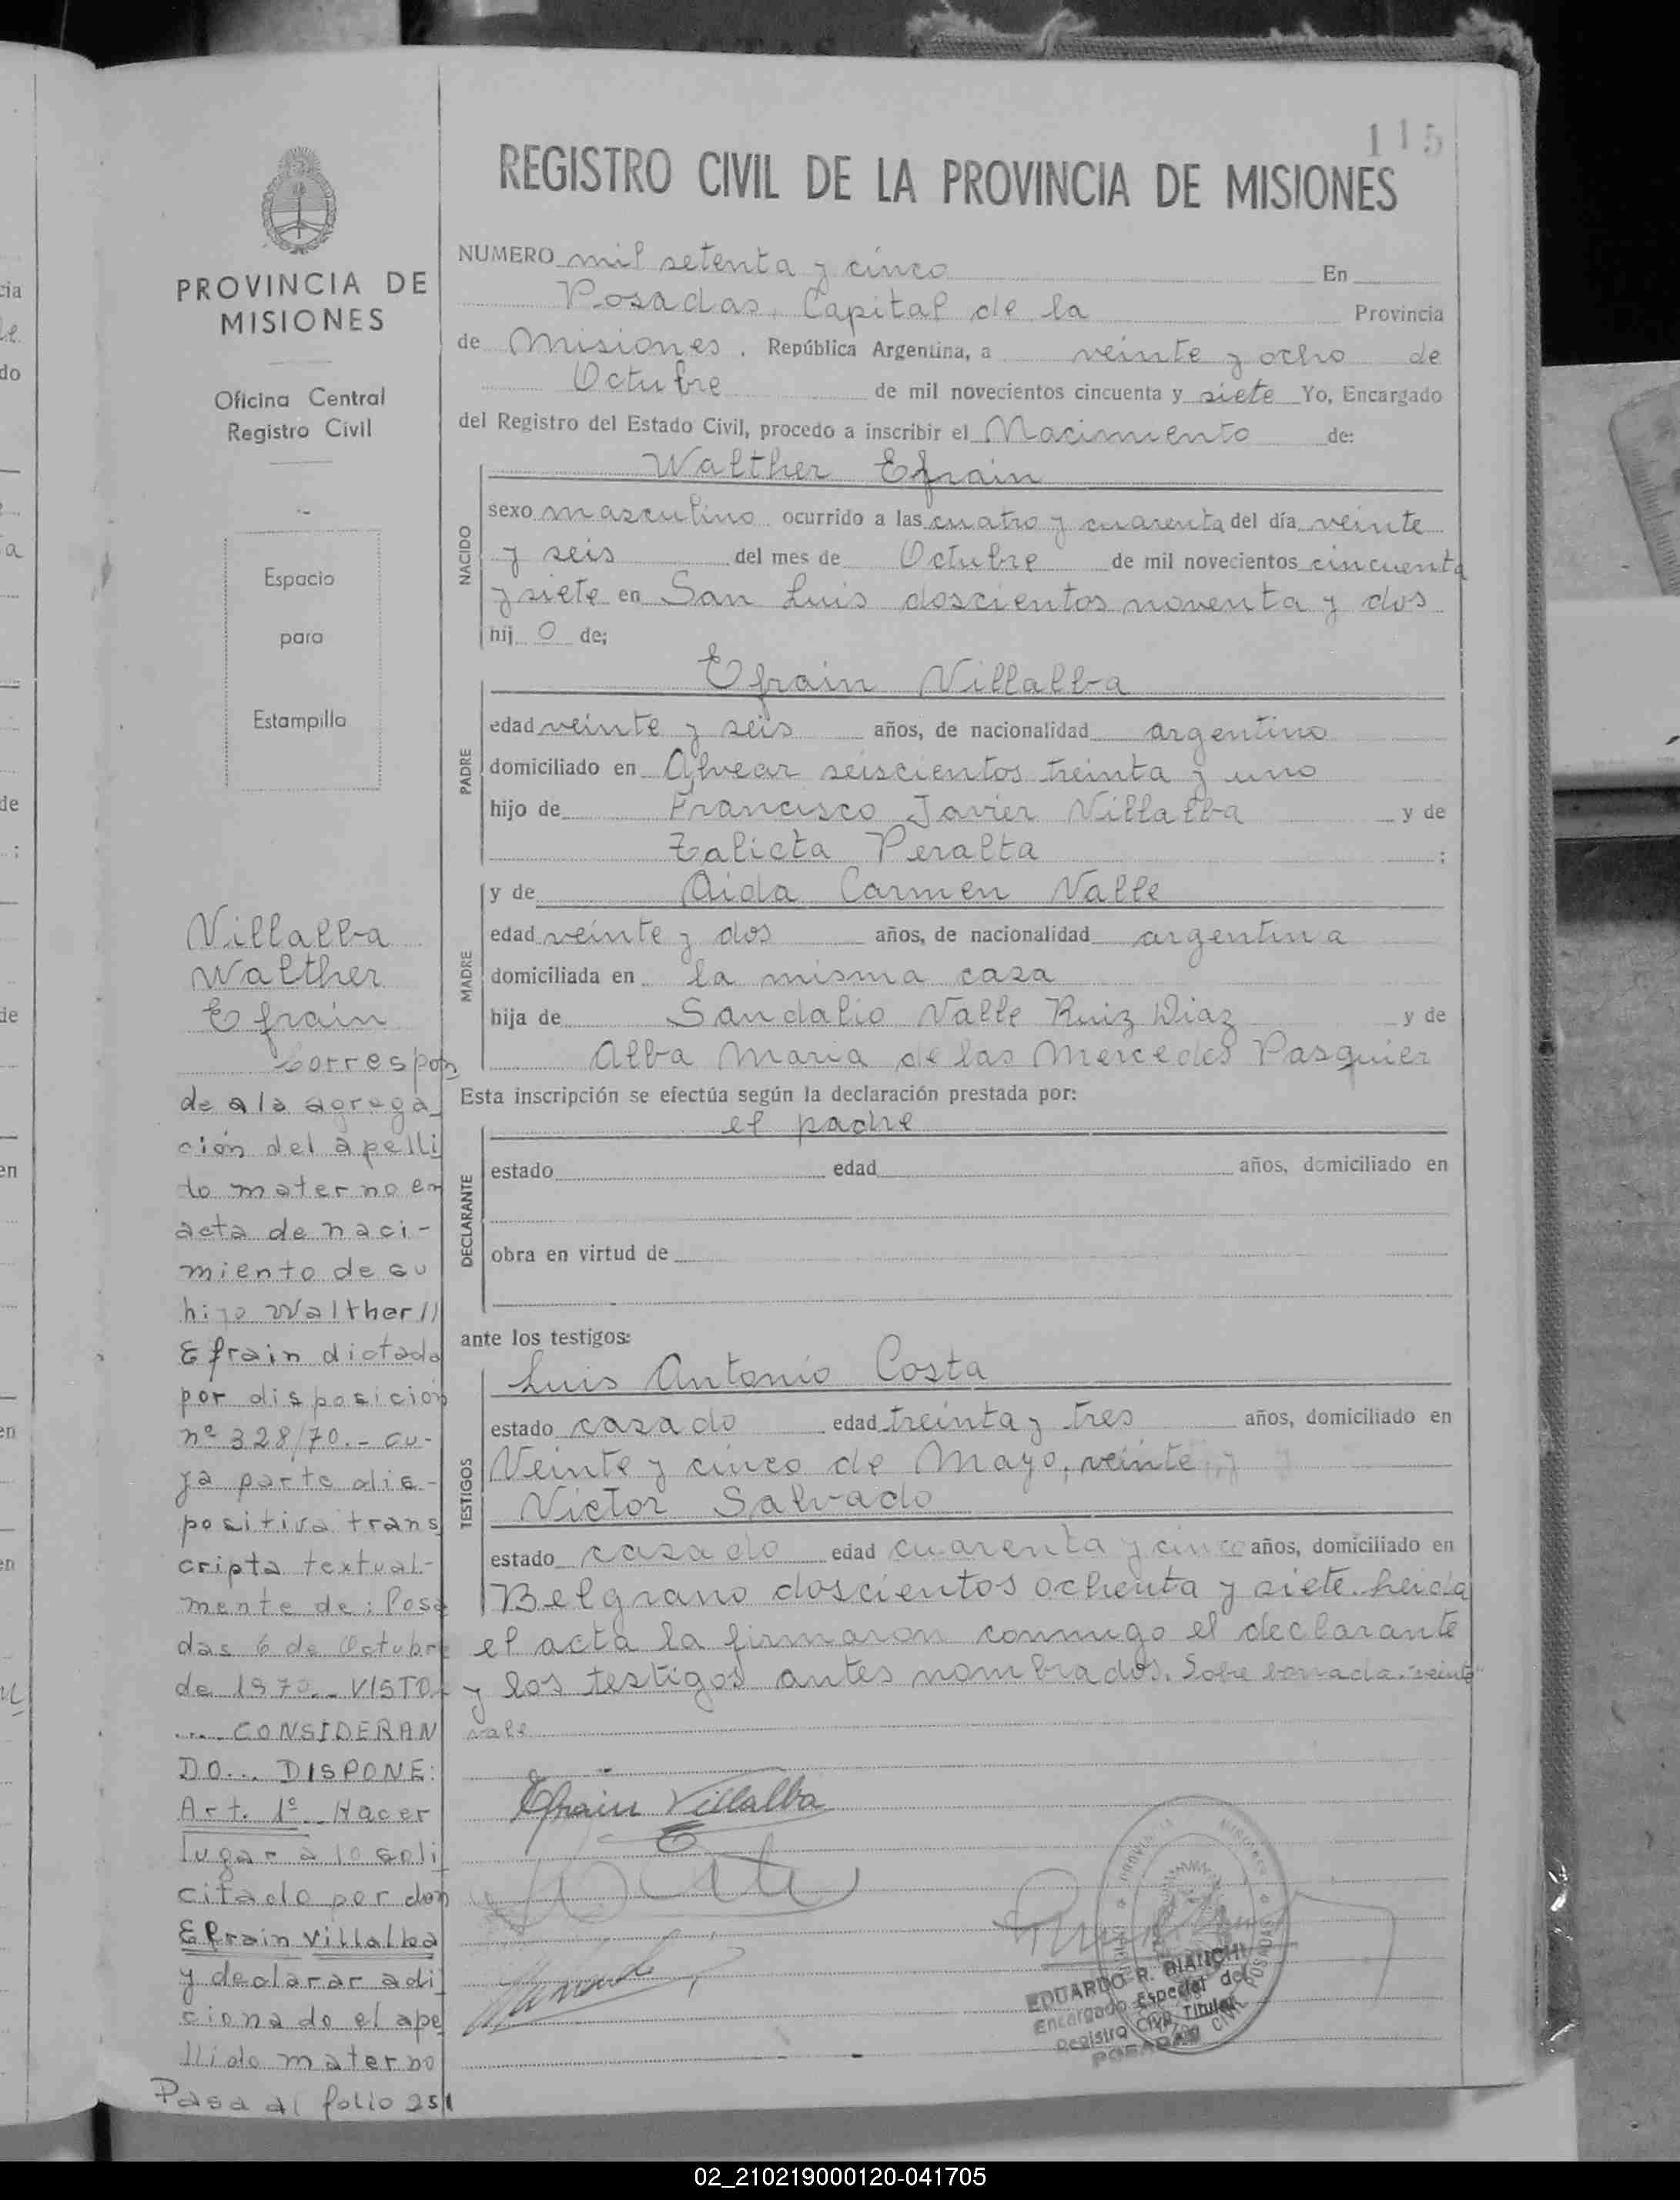 115
REGISTRO CIVIL DE LA PROVINCIA DE MISIONES
PROVINCIA DE
MISIONES
Oficina Central
Registro Civil
Espacio
para
Estampilla
NUMERO mil setenta y cinco En
Posadas, Capital de la Provincia
de Misiones, República Argentina, a veinte y ocho de
Octubre de mil novecientos cincuenta y siete Yo, Encargado
del Registro del Estado Civil, procedo a inscribir el Nacimiento de:
Walther Efrain
NACIDO
sexo masculino ocurrido a las cuatro y cuarenta del día veinte
y seis del mes de Octubre de mil novecientos cincuenta
y siete en San Luis doscientos noventa y dos
hij o de;
Efrain Villalba
PADRE
edad veinte y seis años, de nacionalidad argentino
domiciliado en Alvear seiscientos treinta y uno
hijo de Francisco Javier Villalba y de
Peralta ;
y de Aida Carmen Valle
MADRE
edad veinte y dos años, de nacionalidad argentina
domiciliada en la misma casa
hija de Sandalio Valle Ruiz Diaz y de
Alba Maria de las Mercedes Pasquier
Esta inscripción se efectúa según la declaración prestada por:
el padre
DECLARANTE
estado edad años, domiciliado en
obra en virtud de
ante los testigos:
Luis Antonio Costa
TESTIGOS
estado casado edad treinta y tres años, domiciliado en
Veinte y cinco de Mayo, veinte
Victor Salvado
estado casado edad cuarenta y cinco años, domiciliado en
Belgrano doscientos ochenta y siete. Leida
el acta la firmaron conmigo el declarante
y los testigos antes nombrados. Sobre borrado: "veinte"
vale
Efrain Villalba
EDUARDO R. BIANCHI
Encargado Especial del
Registro Civil Titular
POSADAS
Villalba
Walther
Efrain
Correspon
de a la agrega
ción del apelli
do materno en
acta de naci-
miento de su
hijo Walther //
Efrain dictada
por disposición
nº 328/70.- cu-
ya parte dis-
positiva trans
cripta textual-
mente de: Posa
das 6 de Octubre
de 1970.- VISTO
.... CONSIDERAN
DO... DISPONE:
Art. 1º Hacer
lugar a lo soli
citado por don
Efrain Villalba
y declarar adi
cionado el ape
llido materno
Pasa al folio 251
02_210219000120-041705